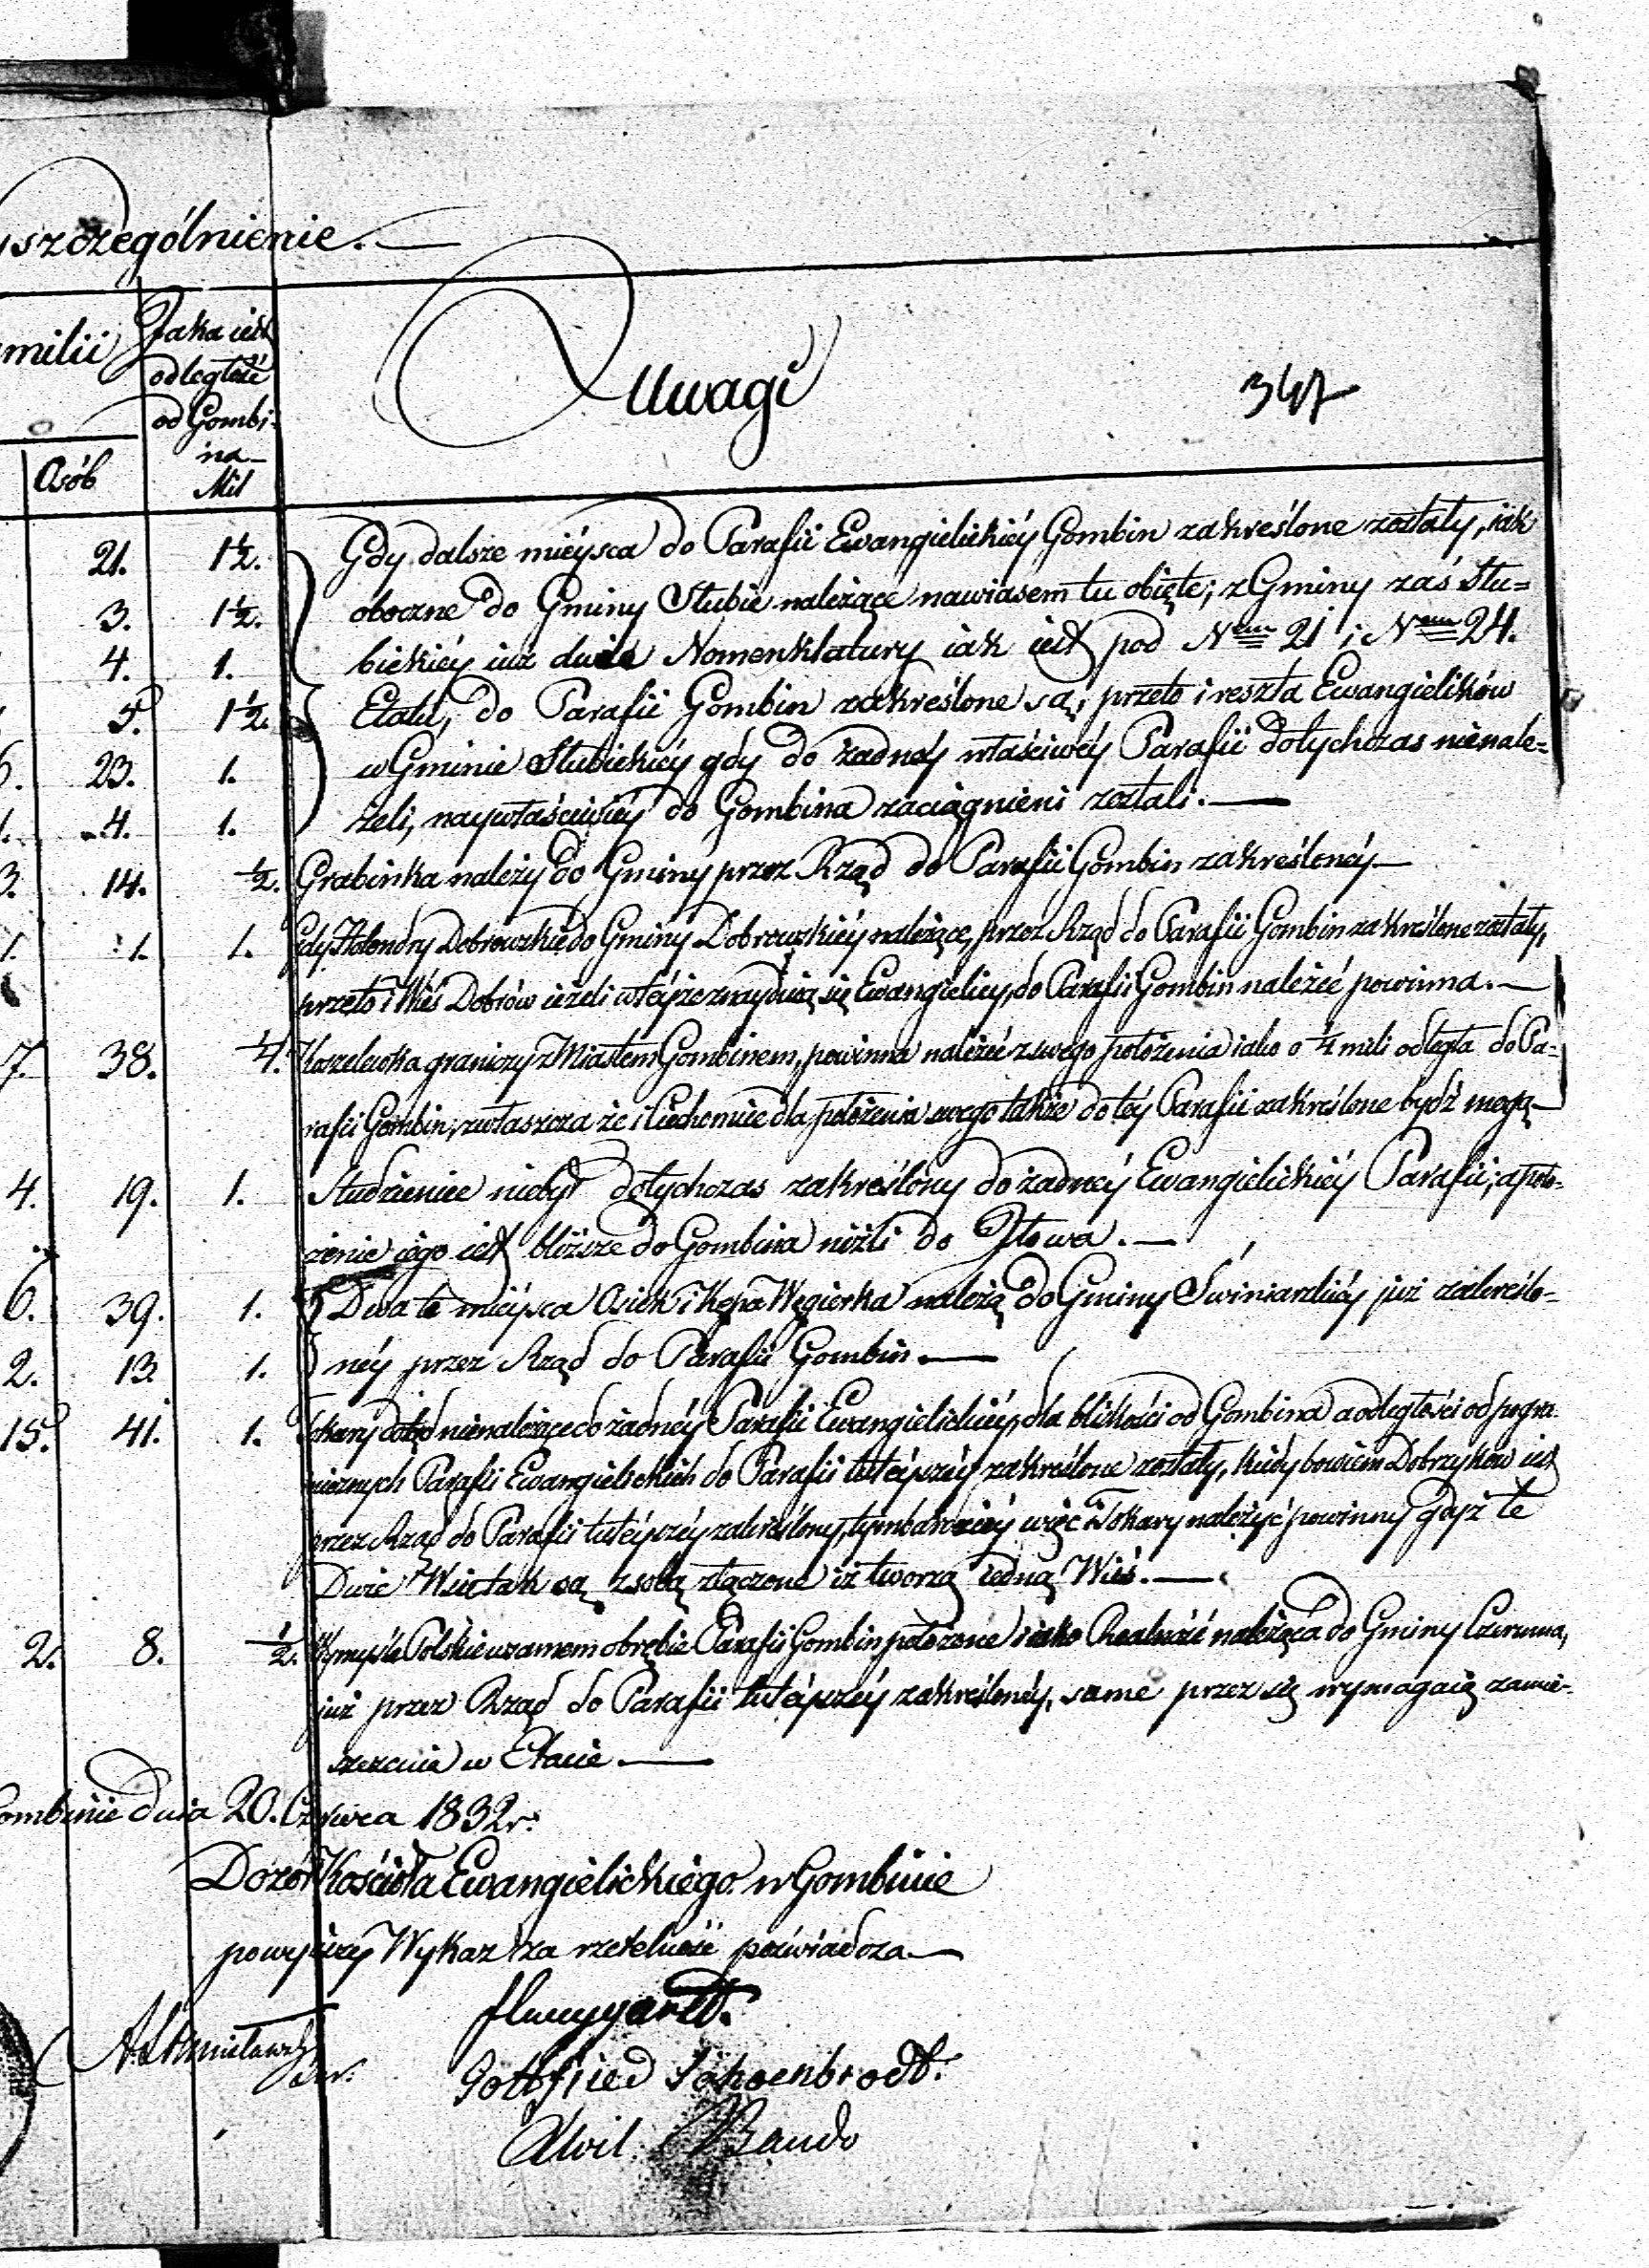 yszczególnienie.
milii
Jaka iest
odległość
od Gombi-
na
Mil
Osób
Uwagi
347
21. 1½. Gdy dalsze mieysca do Parafii Ewangielickiéy Gombin zakreślone zostały, iak
3. 1½. oboczne do Gminy Słubic należące nawiasem tu obięte; z Gminy zaś Słu=
4. 1. bickiéy iuż dwie Nomenklatury iak iest pod Nem 21 i Nem 24.
5. 1½. Etatu, do Parafii Gombin zakreślone są; przeto i reszta Ewangielików
23. 1. w Gminie Słubickiéy gdy do żadnéy właściwéy Parafii dotychczas nienale=
4. 1. żeli, naywłaściwiéy do Gombina zaciągnieni zostali.
3. 14. ½. Grabinka należy do Gminy przez Rząd do Parafii Gombin zakreślonéy
1. 1. 1. Gdy Holendry Dobrowskie do Gminy Dobrowskiéy należące, przez Rząd do Parafii Gombin zakreślone zostały,
przeto i Wieś Dobrów ieżeli w téyże znayduią się Ewangielicy, do Parafii Gombin należeć powinna.
7. 38. ¼. Koszelewka graniczy z Miastem Gombinem, powinna należeć z swego położenia iako o ¼ mili odległa do Pa-
rafii Gombin, zwłaszcza że i Ciechomice dla położenia swego także do téy Parafii zakreślone bydź mogą
4. 19. 1. Studzieniec niebył dotychczas zakreślony do żadnéy Ewangielickiéy Parafii; a poło-
żenie iego iest bliższe do Gombina niżli do Iłowa.
6. 39. 1. Dwa te mieysca Osiek i Kępa Węgierka należą do Gminy Świniarskiéy już zakreślo-
2. 13. 1. néy przez Rząd do Parafii Gombin.
15. 41. 1. Tokary dotąd nienależące do żadnéy Parafii Ewangielickiéy, dla bliskości od Gombina a odległości od pogra-
nicznych Parafii Ewangielickich do Parafii tutéyszéy zakreślone zostały, kiedy bowiem Dobrzyków iest
przez Rząd do Parafii tutéyszéy zakreślony, tymbardziéy więc i Tokary należyć powinny gdyż te
Dwie Wsie tak są z sobą złączone iż tworzą iedną Wieś.
2. 8. ½. Wymyśle Polskie w samem obrębie Parafii Gombin położone i iako Realność należąca do Gminy Czermna,
już przez Rząd do Parafii tutéyszéy zakreślonéy, same przez się wymagaią zamie-
szczenia w Etacie
Gombinie dnia 20. Czerwca 1832 r.
Dozór Kościoła Ewangielickiego w Gombinie
powyższy Wykaz za rzetelność poświadcza
Gottfried Schoenbrodt.
Bando